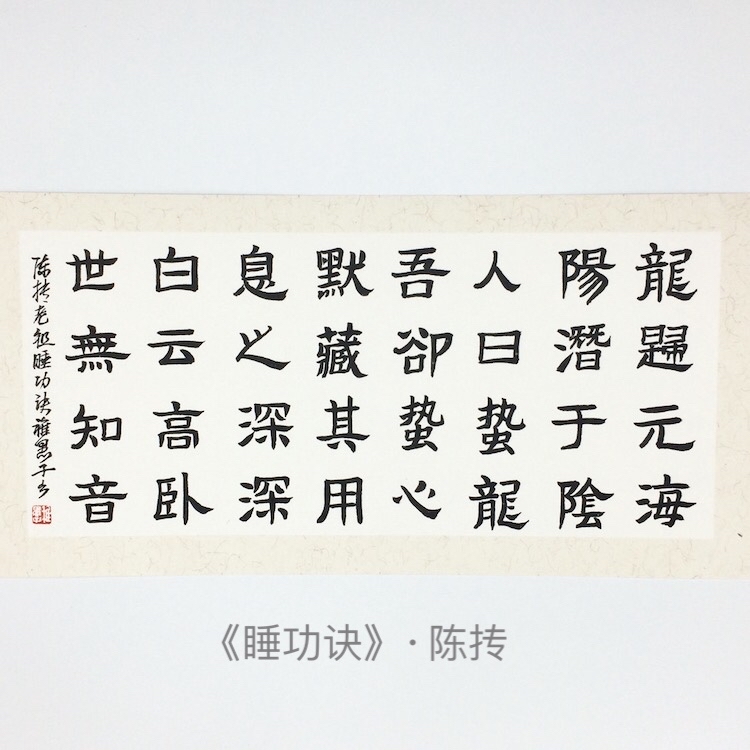 龍歸元海
陽潛于陰
人曰蟄龍
吾卻蟄心
默藏其用
息之深深
白云高卧
世無知音
陈抟老祖睡功诀雅墨子书
《睡功诀》·陈抟